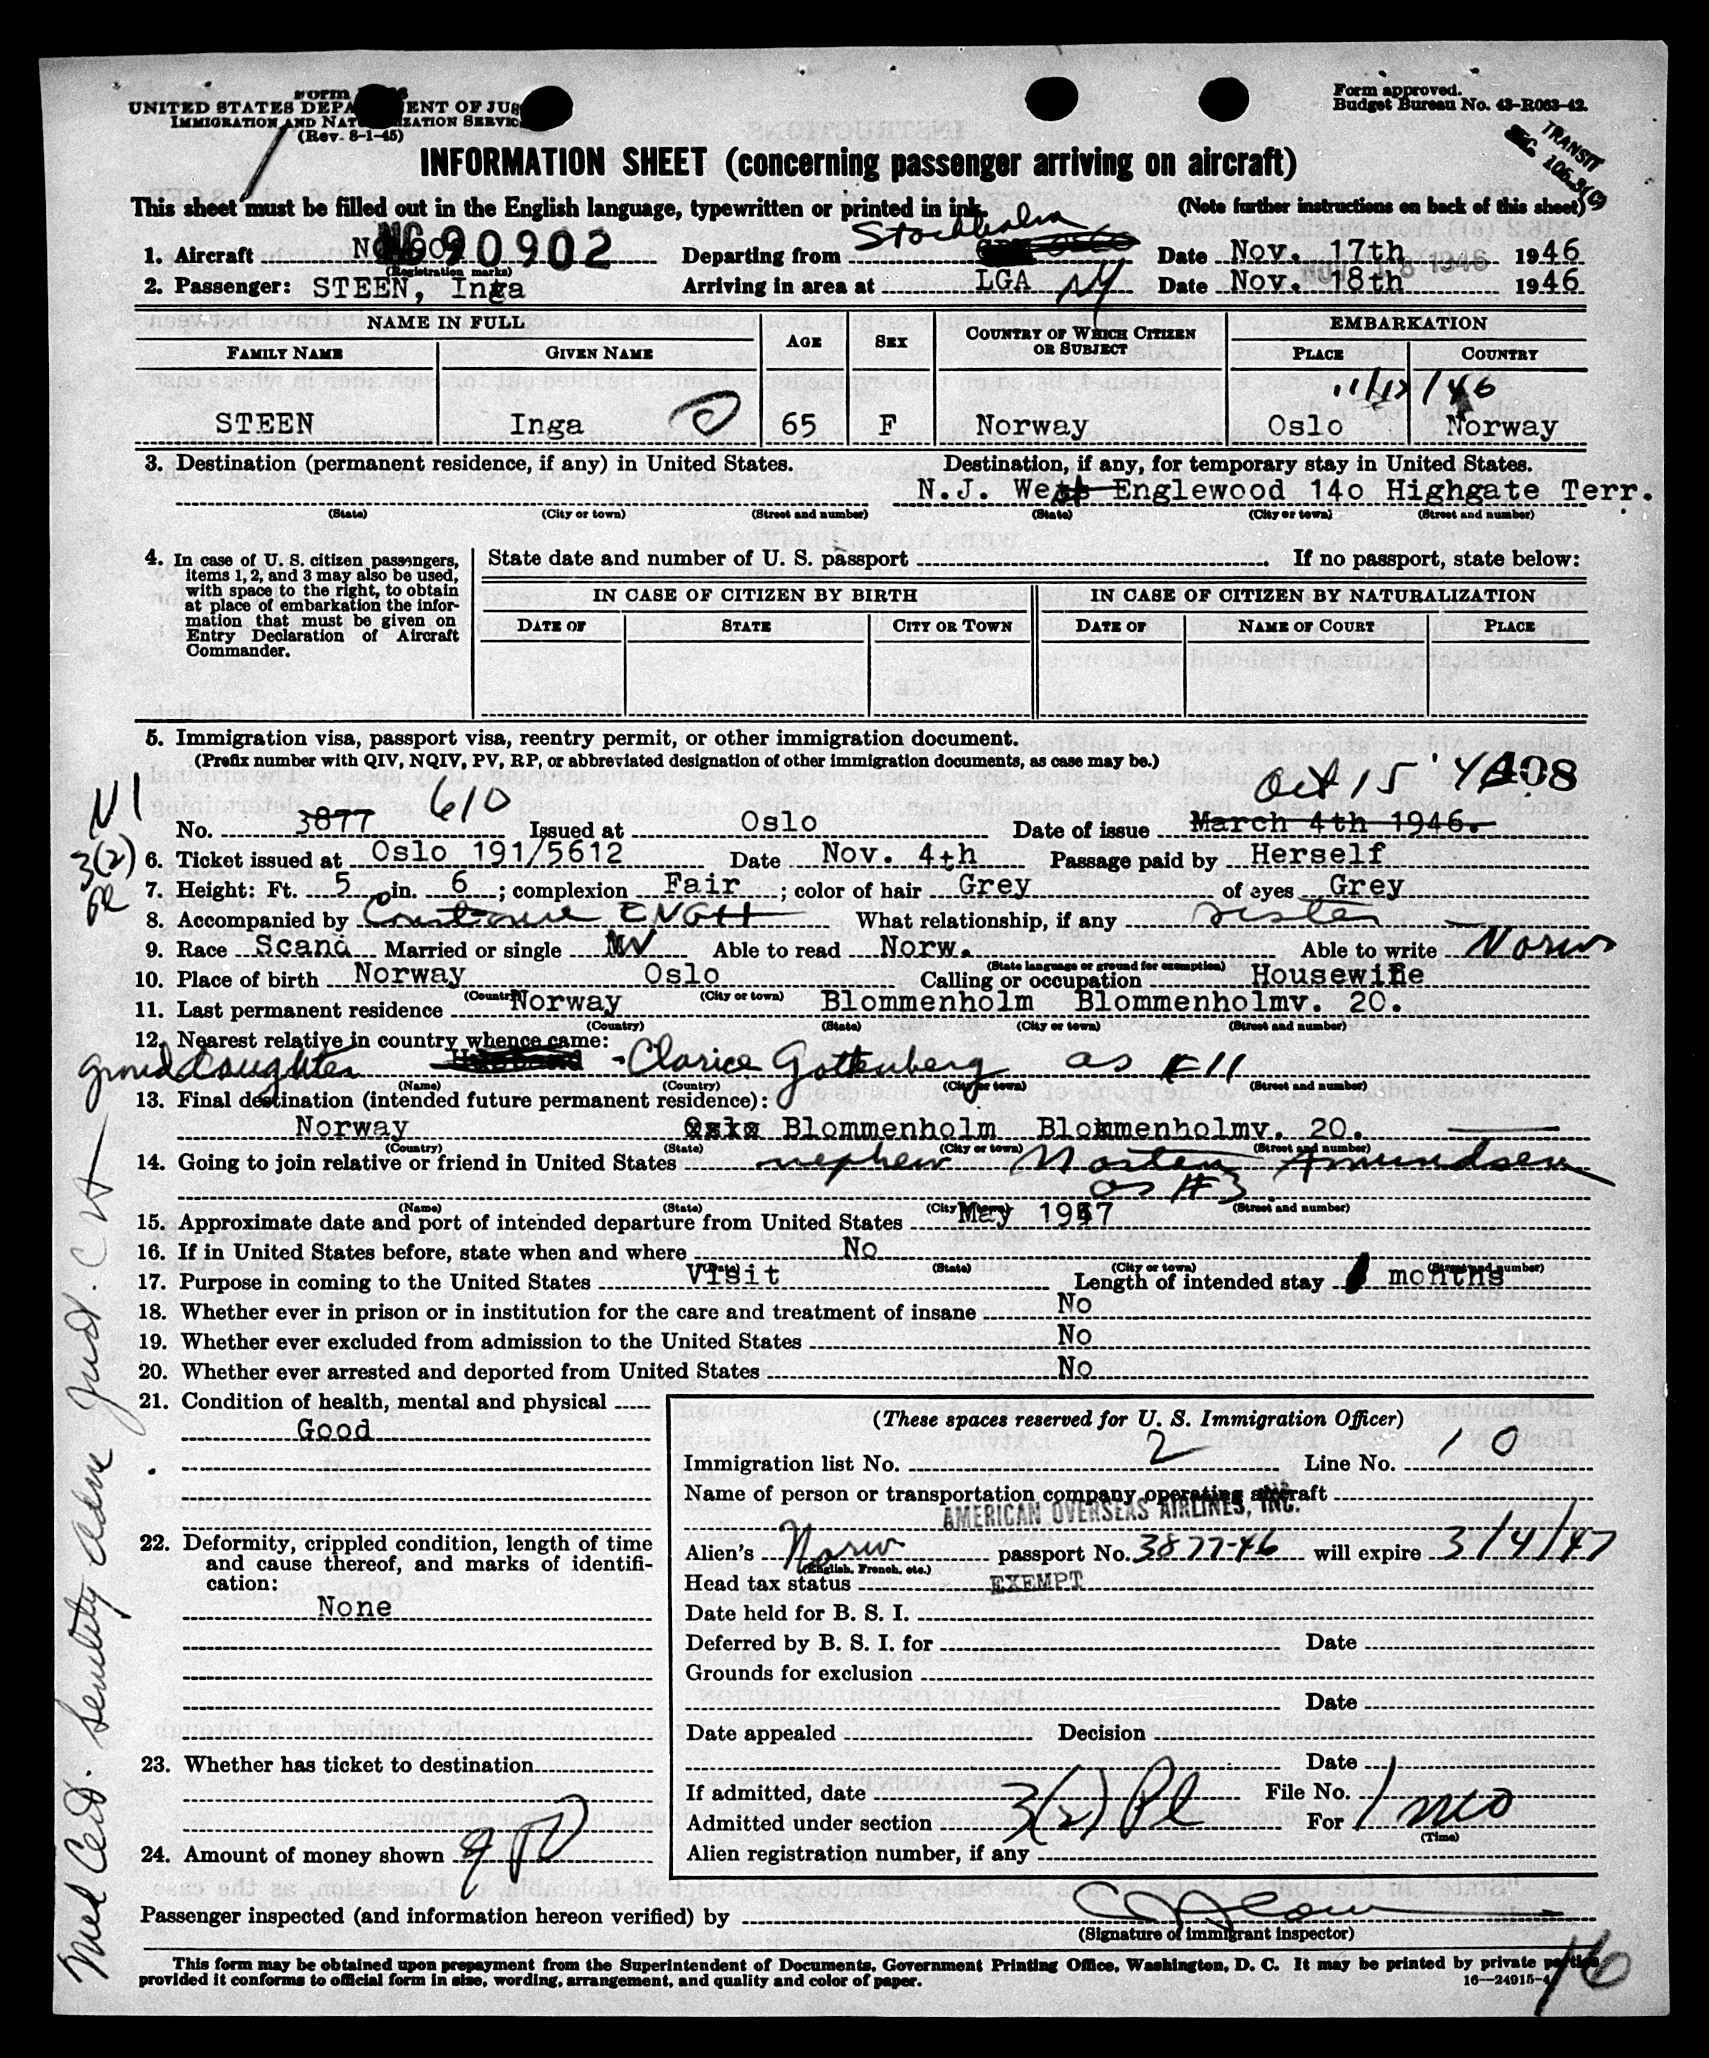 UNITED STATES DEPARTMENT OF JUSTICE
IMMIGRATION AND NATURALIZATION SERVICE
(Rev. 8-1-45)
Form approved.
Budget Bureau No. 43-R063-42.
TRANSIT
INFORMATION SHEET (concerning passenger arriving on aircraft)
This sheet must be filled out in the English language, typewritten or printed in ink.
(Note further instructions on back of this sheet)
1. Aircraft 90902 (Registration marks) Departing from Stockholm Date Nov. 17th 1946
2. Passenger: STEEN, Inga Arriving in area at LGA NY Date Nov. 18th 1946
NAME IN FULL AGE SEX COUNTRY OF WHICH CITIZEN OR SUBJECT EMBARKATION
FAMILY NAME GIVEN NAME PLACE COUNTRY
11/17/46
STEEN Inga 65 F Norway Oslo Norway
3. Destination (permanent residence, if any) in United States. Destination, if any, for temporary stay in United States.
N.J. West Englewood 14o Highgate Terr.
(State) (City or town) (Street and number) (State) (City or town) (Street and number)
4. In case of U. S. citizen passengers, items 1, 2, and 3 may also be used, with space to the right, to obtain at place of embarkation the information that must be given on Entry Declaration of Aircraft Commander.
State date and number of U. S. passport . If no passport, state below:
IN CASE OF CITIZEN BY BIRTH IN CASE OF CITIZEN BY NATURALIZATION
DATE OF STATE CITY OR TOWN DATE OF NAME OF COURT PLACE
5. Immigration visa, passport visa, reentry permit, or other immigration document.
(Prefix number with QIV, NQIV, PV, RP, or abbreviated designation of other immigration documents, as case may be.)
Oct 15 '46 408
No. 3877 610 Issued at Oslo Date of issue March 4th 1946.
3(2)
6. Ticket issued at Oslo 191/5612 Date Nov. 4th Passage paid by Herself
7. Height: Ft. 5 in. 6 ; complexion Fair ; color of hair Grey of eyes Grey
8. Accompanied by Constance ENGH What relationship, if any sister
9. Race Scand Married or single W Able to read Norw. Able to write Norw
(State language or ground for exemption)
10. Place of birth Norway Oslo Calling or occupation Housewife
(Country) (City or town)
11. Last permanent residence Norway Blommenholm Blommenholmv. 20.
(Country) (State) (City or town) (Street and number)
12. Nearest relative in country whence came:
granddaughter Clarice Gottenberg as #11
(Name) (Country) (City or town) (Street and number)
13. Final destination (intended future permanent residence):
Norway Blommenholm Blommenholmv. 20.
(Country) (State) (City or town) (Street and number)
14. Going to join relative or friend in United States nephew Morten Amundsen
as #3
(Name) (State) (City or town) (Street and number)
15. Approximate date and port of intended departure from United States May 1947
16. If in United States before, state when and where No
(Date) (State) (City or town) (Street and number)
17. Purpose in coming to the United States Visit Length of intended stay months
18. Whether ever in prison or in institution for the care and treatment of insane No
19. Whether ever excluded from admission to the United States No
20. Whether ever arrested and deported from United States No
21. Condition of health, mental and physical
Good
22. Deformity, crippled condition, length of time and cause thereof, and marks of identification:
None
23. Whether has ticket to destination
24. Amount of money shown
(These spaces reserved for U. S. Immigration Officer)
Immigration list No. 2 Line No. 10
Name of person or transportation company operating aircraft
AMERICAN OVERSEAS AIRLINES, INC.
Alien's Norw passport No. 3877-46 will expire 3/4/47
(English, French, etc.)
Head tax status EXEMPT
Date held for B. S. I.
Deferred by B. S. I. for Date
Grounds for exclusion
Date
Date appealed Decision
Date
If admitted, date File No.
Admitted under section 3(2) Pl For
(Time)
Alien registration number, if any
Passenger inspected (and information hereon verified) by
(Signature of immigrant inspector)
Med Cert. Senility
This form may be obtained upon prepayment from the Superintendent of Documents, Government Printing Office, Washington, D. C. It may be printed by private parties
provided it conforms to official form in size, wording, arrangement, and quality and color of paper. 16—24915-4
16